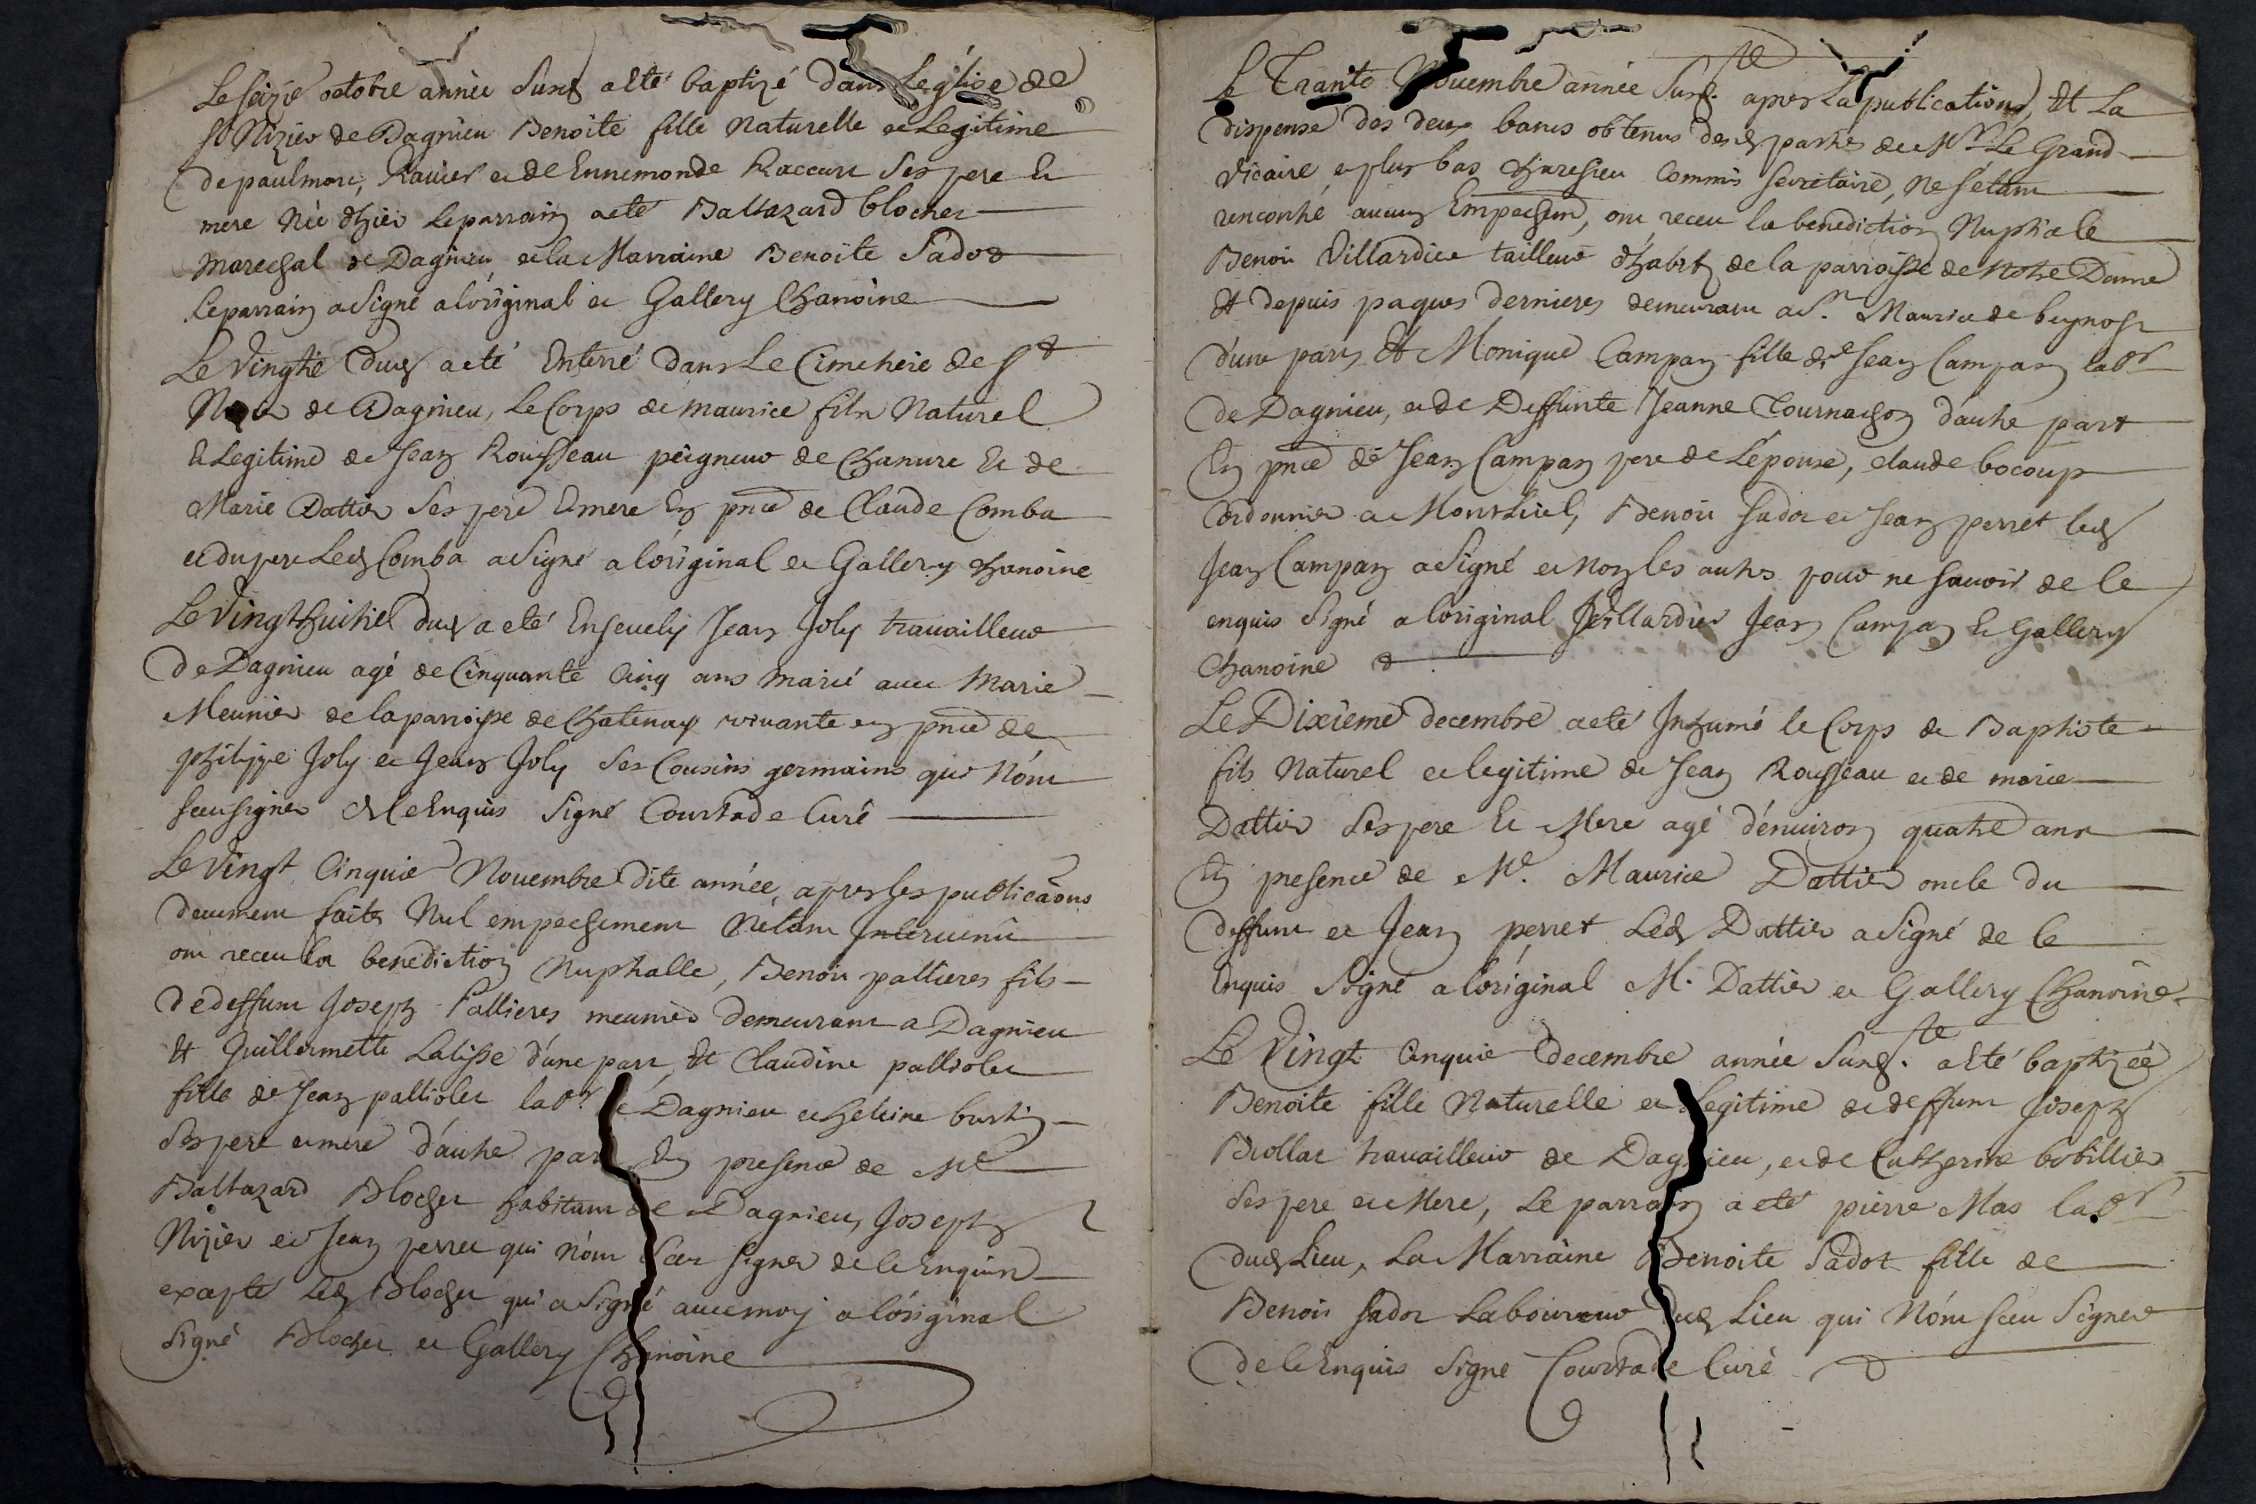 Le seizie octobre année susd a eté baptizé dans Leglise de
St Nizier de Dagnieu Benoite fille naturelle et Legitime
de paul marc Ravier et de Ennemonde Raccurt Ses pere Et
mere Née d'hier Le parrain a eté Baltazard blochet
marechal de Dagnieu et la Marraine Benoite Sadot
Le parrain a Signé a l'original et Gallery Chanoine
Le vingtie dud a eté Enterré dans Le Cimetiere de St
de Dagnieu, Le Corps de maurice fils Naturel
Et Legitime de Jean Rousseau peigneur de Chanvre Et de
Marie Dattier Ses pere Et mere En pnce de Claude Comba
et du pere Led Comba a Signé a l'original et Gallery Chanoine
Le vingt huitie dud a eté Ensevely Jean Joly travailleur
De Dagnieu agé de Cinquante Cinq ans marié avec Marie
Meunier de la parroisse de Chatenay vivante en pnce de
philippe Joly et Jean Joly Ses Cousins germains qui N'ont
sceu signer de Ce Enquis Signé Courtade Curé
Le vingt Cinquie Novembre dite année, apres les publicaons
deuement faites Nul empechement N'etant Intervenu
ont receu la benediction Nuptialle, Benoit pallieres fils
de deffunt Joseph Pallieres meunier demeurant a Dagnieu
Et Guillermette Lalisse d'une part, Et Claudine palliolet
fille de Jean palliolet labr de Dagnieu et heleine burtin
Ses pere et mere d'autre part En presence de Me
Baltazard Blochet habitant de Dagnieu, Joseph
Nizier et Jean perret qui n'ont Sceu signer de ce Enquis
excepté Led Blochet qui a Signé avec moy a l'original
Signé Blochet et Gallery Chanoine
Le Trante Novembre année Susd.te apres La publication, Et La
dispense des deux bancs obtenus desd parties de Mr Le Grand
Vicaire et plus bas Commis Secretaire, Ne s'étant
rencontré aucun Empechemt, ont receu la benediction Nuptiale
Benoit Villardier tailleur d'habit de la parroisse de Notre Dame
Et depuis paques dernieres demeurant a St. Maurice de beynost
d'une part, Et Monique Campan fille de Jean Campan labr
de Dagnieu, et de Deffunte Jeanne Tournachon d'autre part
En pnce de Jean Campan pere de L'épouse, claude bocoup
Cordonnier a Montluel, Benoit Sadot et Jean perret led
Jean Campan a Signé et Non les autres pour ne savoir de Ce
enquis Signé a l'original Villardier Jean Campan Et Gallery
Chanoine
Le Dixieme decembre a eté Inhumé le Corps de Baptiste
fils Naturel et legitime de Jean Rousseau et de marie
Dattier Ses pere Et Mere agé d'environ quatre ans
En presence de Me. Maurice Dattier oncle du
deffunt et Jean perret Led Dattier a Signé de Ce
Enquis Signé a l'original M. Dattier et Gallery Chanoine
Le Vingt Cinquie decembre année Susd.te a Eté baptizée
Benoite fille Naturelle et Legitime de deffunt Joseph
Brollat travailleur de Dagnieu, et de Catherine bobillier
Ses pere et Mere, Le parrain a eté pierre Mas labr
dud Lieu, La Marraine Benoite Sadot fille de
Benoit Sadot Laboureur dud Lieu qui N'ont sceu Signer
de Ce Enquis Signé Courtade Curé